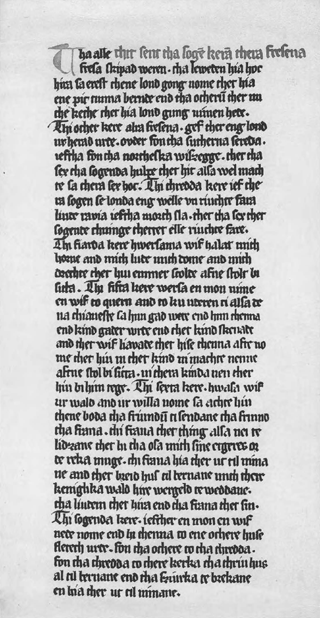 Tha alle thit sent tha sogen keran thera fresena
fresa skipad weren. tha leweden hia hoc
hira sa erest thene lond gong nome ther hia
ene pic tunna bernde end tha otheru ther
the kethe ther hia lond gung nimen hete.
Thi other kere alra fresena. gef ther eng lond
urherad urde. other fon tha sutherna
ieftha fon tha northeska wiszegge. ther tha
sex tha sogenda hulpe thet hit alsa wel mach
te sa thera ser hoc. Thi thredda kere ief the
ra sogen se londa eng welle un riuchte fara
liude rauia ieftha morth sla. ther tha sex ther
sogente thuinge therret elle riuchte fare.
Thi fiarda kere hwersama wif halat mith
horne and mith lude mith dome and mith
drechte thet hiu emmer scolde afne stolr bi
sitta. Thi fifta kere wersa en mon nime
en wif to quern and to ku alsa te
na thianeste sa hiu gad were end him thenna
end kind gader urte end thet kind skenade
and thet wif liavade thet hise thenna afte no
me thet hiu in thet kind in machte nenne
afne stol bi sitta. in thera kinda nen ther
hiu bi him tege. Thi sexta kere. hwasa wif
ur wald and ur willa nome sa achte hiu
thene boda tha friundum ti sendane tha friuno
tha frana. thi frana ther thing alsa nei te
lidzane ther hi tha osa mith sine
te reka muge. thi frana hia ther ut til nima
ne and ther breid hus til bernane mith there
keniglika wald hire wergeld te weddane.
tha liudem ther hira end tha frana ther sin.
Thi sogenda kere. iefther en mon en wif
nede nome end hi thenna to ene othere huse
flerech urte. fon tha othere to tha thredda.
fon tha thredda to there kerka tha thriu hus
al til bernane end tha szurka te brekane
en hia ther ut til nimane.